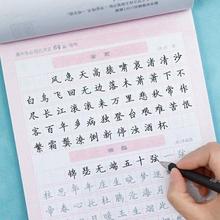 登高
风急天高猿啸哀渚清沙
白鸟飞回无边落木萧萧下不
尽长江滚滚来万里悲秋常作
客百年多病独登台艰难苦恨
繁霜鬓潦倒新停浊酒杯
锦瑟
锦瑟无端五十弦
柱思华年庄生晓梦迷